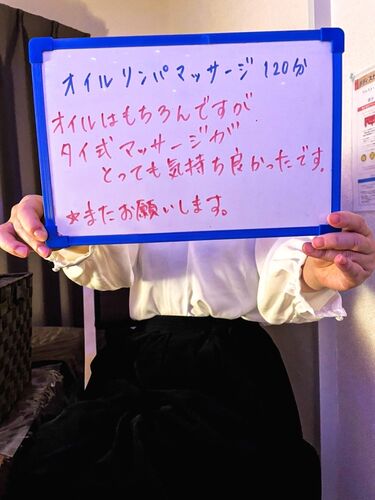 オイルリンパマッサージ 120分
オイルはもちろんですが
タイ式マッサージが
とっても気持ち良かったです。
★またお願いします。